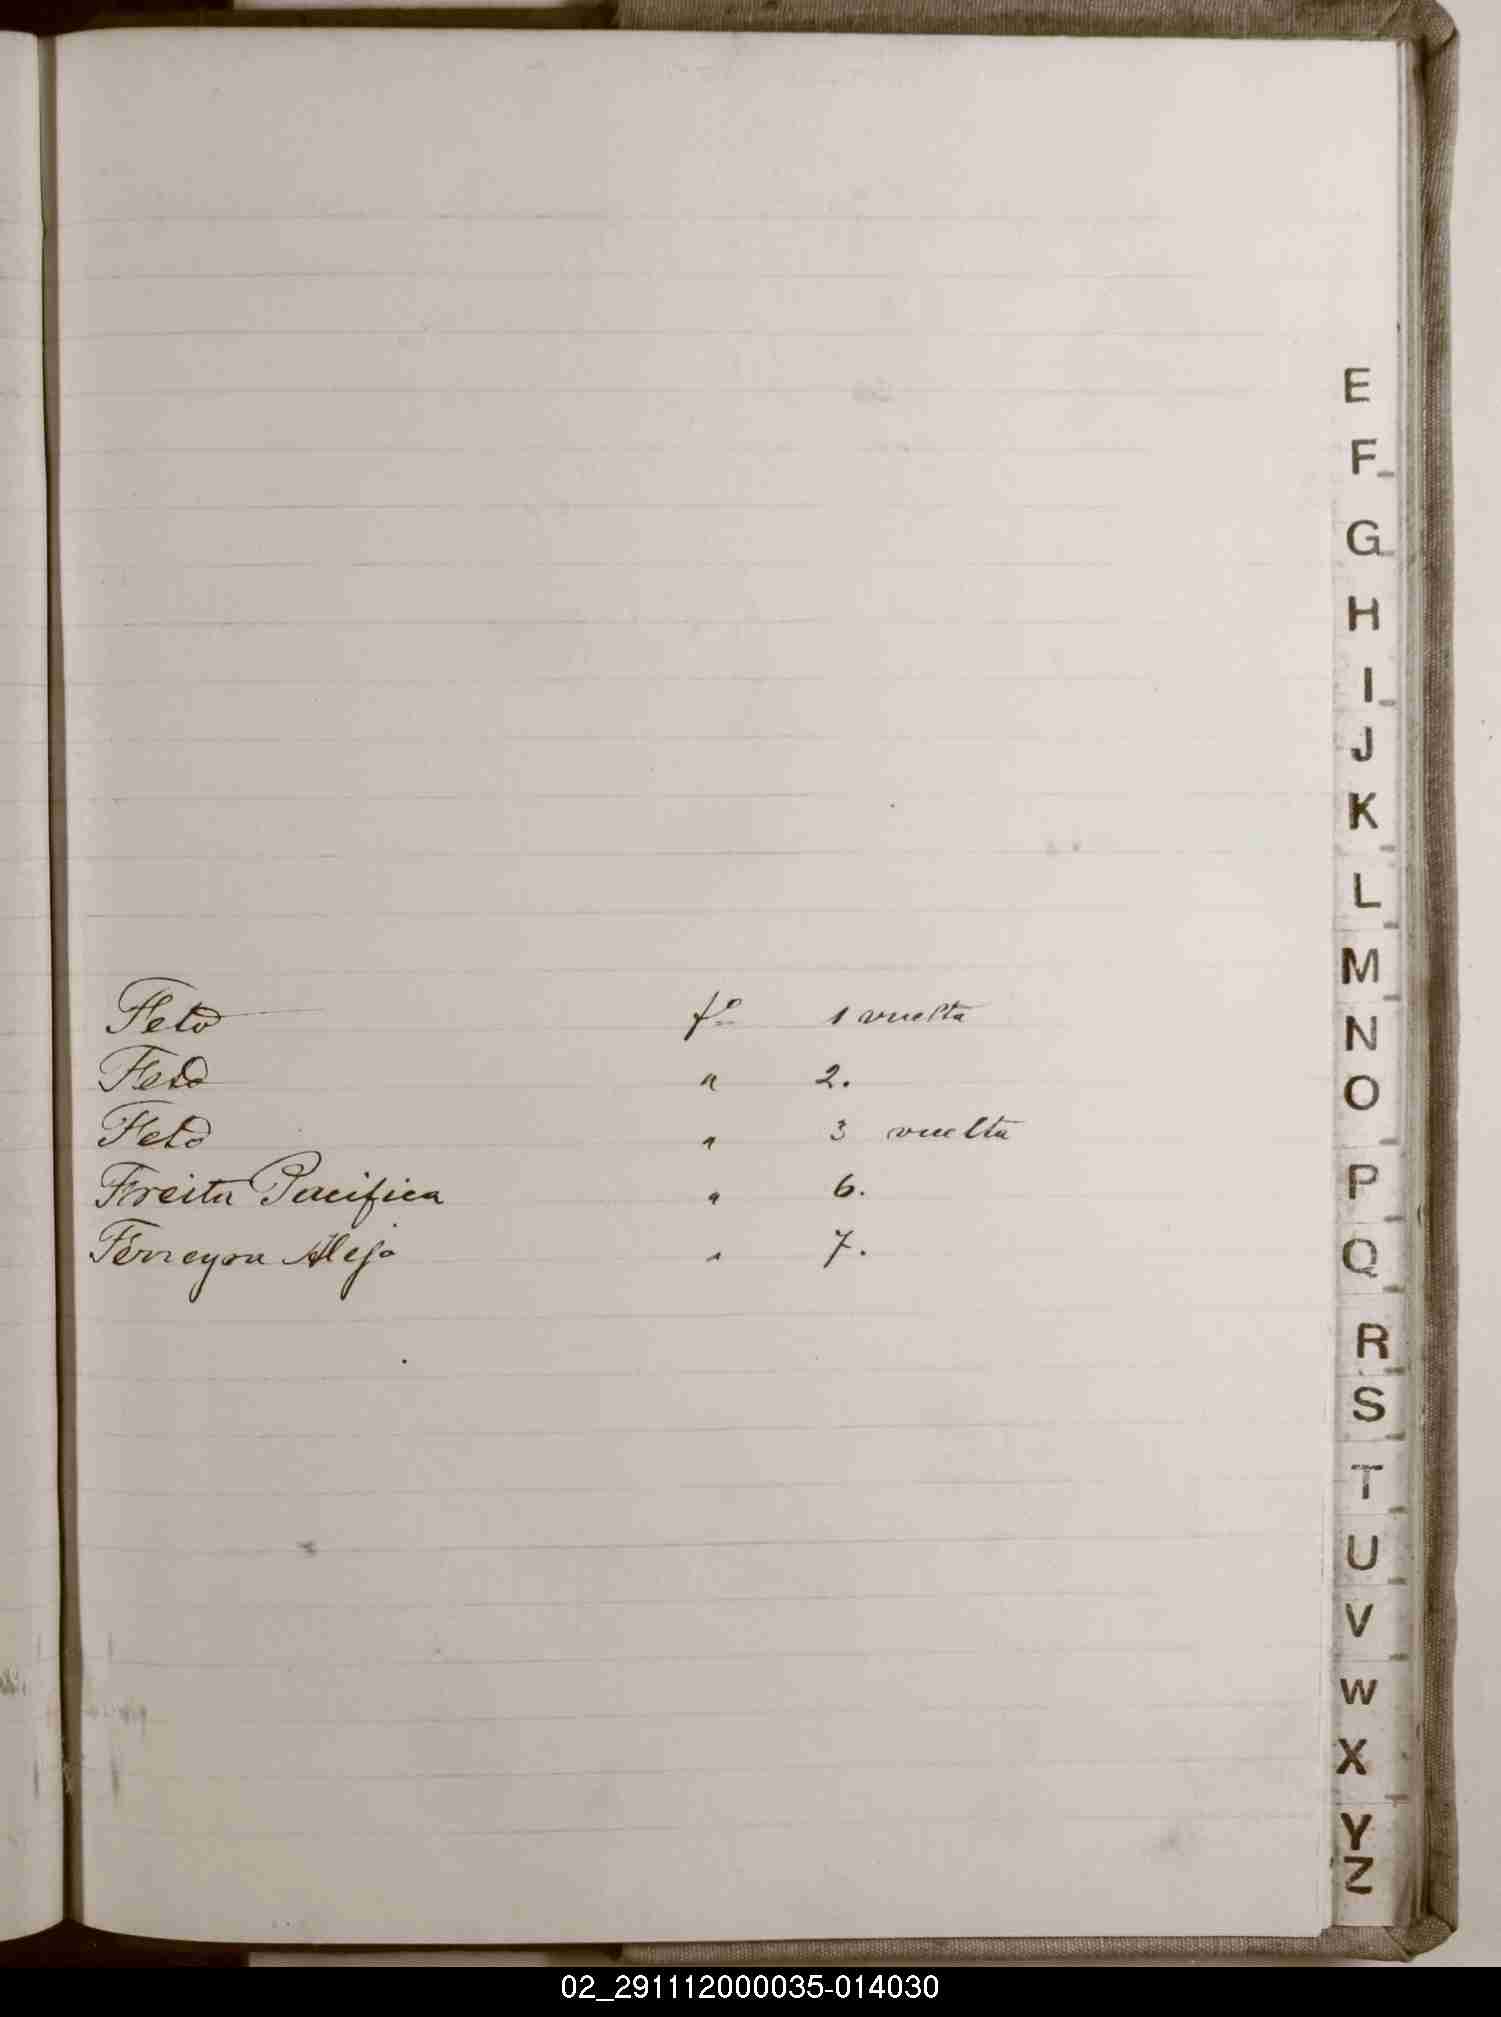 E
F
G
H
I
J
K
L
M
N
O
P
Q
R
S
T
U
V
W
X
Y
Z
Feto fo 1 vuelta
Feto " 2.
Feto " 3 vuelta
Freita Pacifica " 6.
Ferreyra Alejo " 7.
02_291112000035-014030